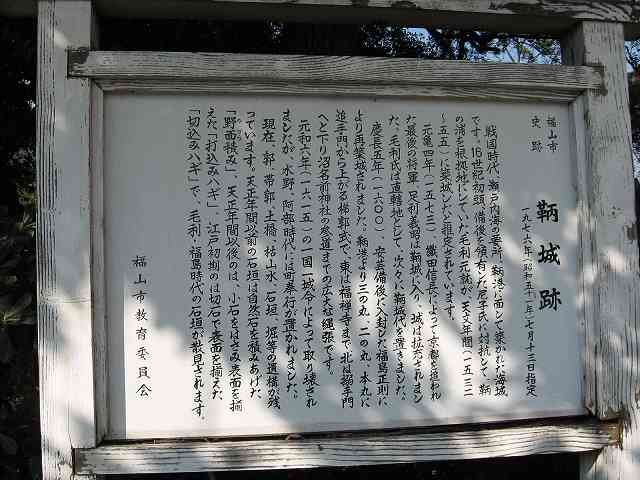 福山市
史跡
鞆城跡
一九七六年(昭和五十一年)七月十三日指定
戦国時代、瀬戸内海の要所、鞆港に面して築かれた海城
です。16世紀初頭、備後を領有した尼子氏に対抗して、鞆
の湾を根拠地にしていた毛利元就が、天文年間(一五三二
～五五)に築城したと推定されています。
元亀四年(一五七三)、織田信長によって京都を追われ
た最後の将軍、足利義昭は鞆城に入り、城は拡充されまし
た。毛利氏は直轄地として、次々に鞆城代を置きました。
慶長五年(一六〇〇)、安芸備後に入封した福島正則に
より再築城されました。鞆港より三の丸、二の丸、本丸に
追手門から上がる梯郭式で、東は福禅寺まで、北は搦手門
へと下り沼名前神社の参道までの広大な縄張です。
元和六年(一六一五)の一国一城令によって取り壊され
ましたが、水野、阿部時代には町奉行が置かれました。
現在、郭、帯郭、土橋、枯山水、石垣、堀等の遺構が残
っています。天正年間以前の石垣は自然石を積みあげた
「野面積み」、天正年間以後のは、小石をはさみ表面を揃
えた「打込みハギ」、江戸初期のは切石で表面を揃えた
「切込みハギ」で、毛利、福島時代の石垣が散見されます。
福山市教育委員会